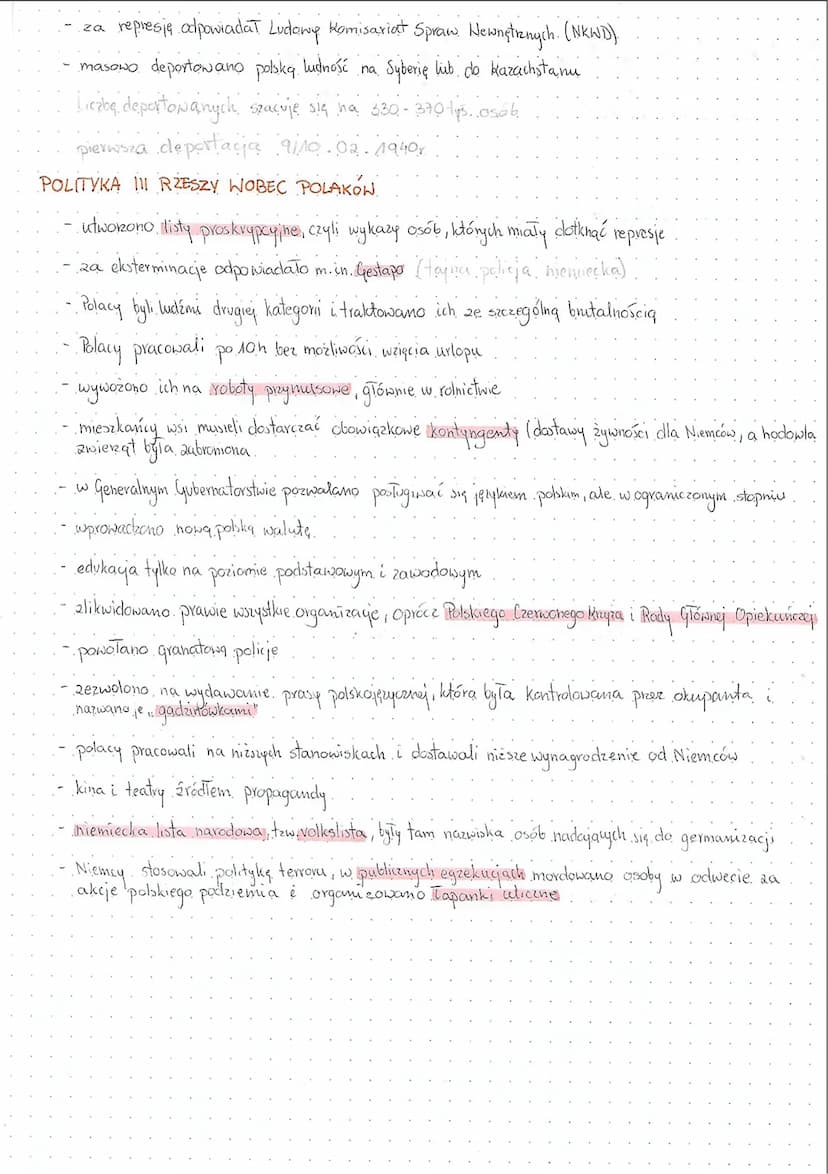 - za represję odpowiadał Ludowy Komisariat Spraw Wewnętrznych (NKWD)
- masowo deportowano polską ludność na Syberię lub do Kazachstanu
liczbę deportowanych szacuję się na 330-370 tyś. osób
pierwsza deportacja 9/10.02.1940r
POLITYKA III RZESZY WOBEC POLAKÓW
- utworzono listy proskrypcyjne, czyli wykazy osób, których miały dotknąć represje
- za eksterminacje odpowiadało m.in. Gestapo (tajna policja niemiecka)
- Polacy byli ludźmi drugiej kategorii i traktowano ich ze szczególną brutalnością
- Polacy pracowali po 10h bez możliwości wzięcia urlopu
- wywożono ich na roboty przymusowe, głównie w rolnictwie
- mieszkańcy wsi musieli dostarczać obowiązkowe kontyngenty (dostawy żywności dla Niemców, a hodowla
zwierząt była zabroniona
- w Generalnym Gubernatorstwie pozwalano posługiwać się językiem polskim, ale w ograniczonym stopniu
- wprowadzono nową polską walutę
- edukacja tylko na poziomie podstawowym i zawodowym
- zlikwidowano prawie wszystkie organizacje, oprócz Polskiego Czerwonego Krzyża i Rady Głównej Opiekuńczej
- powołano granatową policje
- zezwolono na wydawanie prasy polskojęzycznej, która była kontrolowana przez okupanta i
nazwano je „gadzinówkami"
- polacy pracowali na niższych stanowiskach i dostawali niższe wynagrodzenie od Niemców
- kina i teatry źródłem propagandy
- niemiecka lista narodowa, tzw. volkslista, były tam nazwiska osób nadających się do germanizacji
- Niemcy stosowali politykę terroru, w publicznych egzekucjach mordowano osoby w odwecie za
akcje polskiego podziemia i organizowano łapanki uliczne